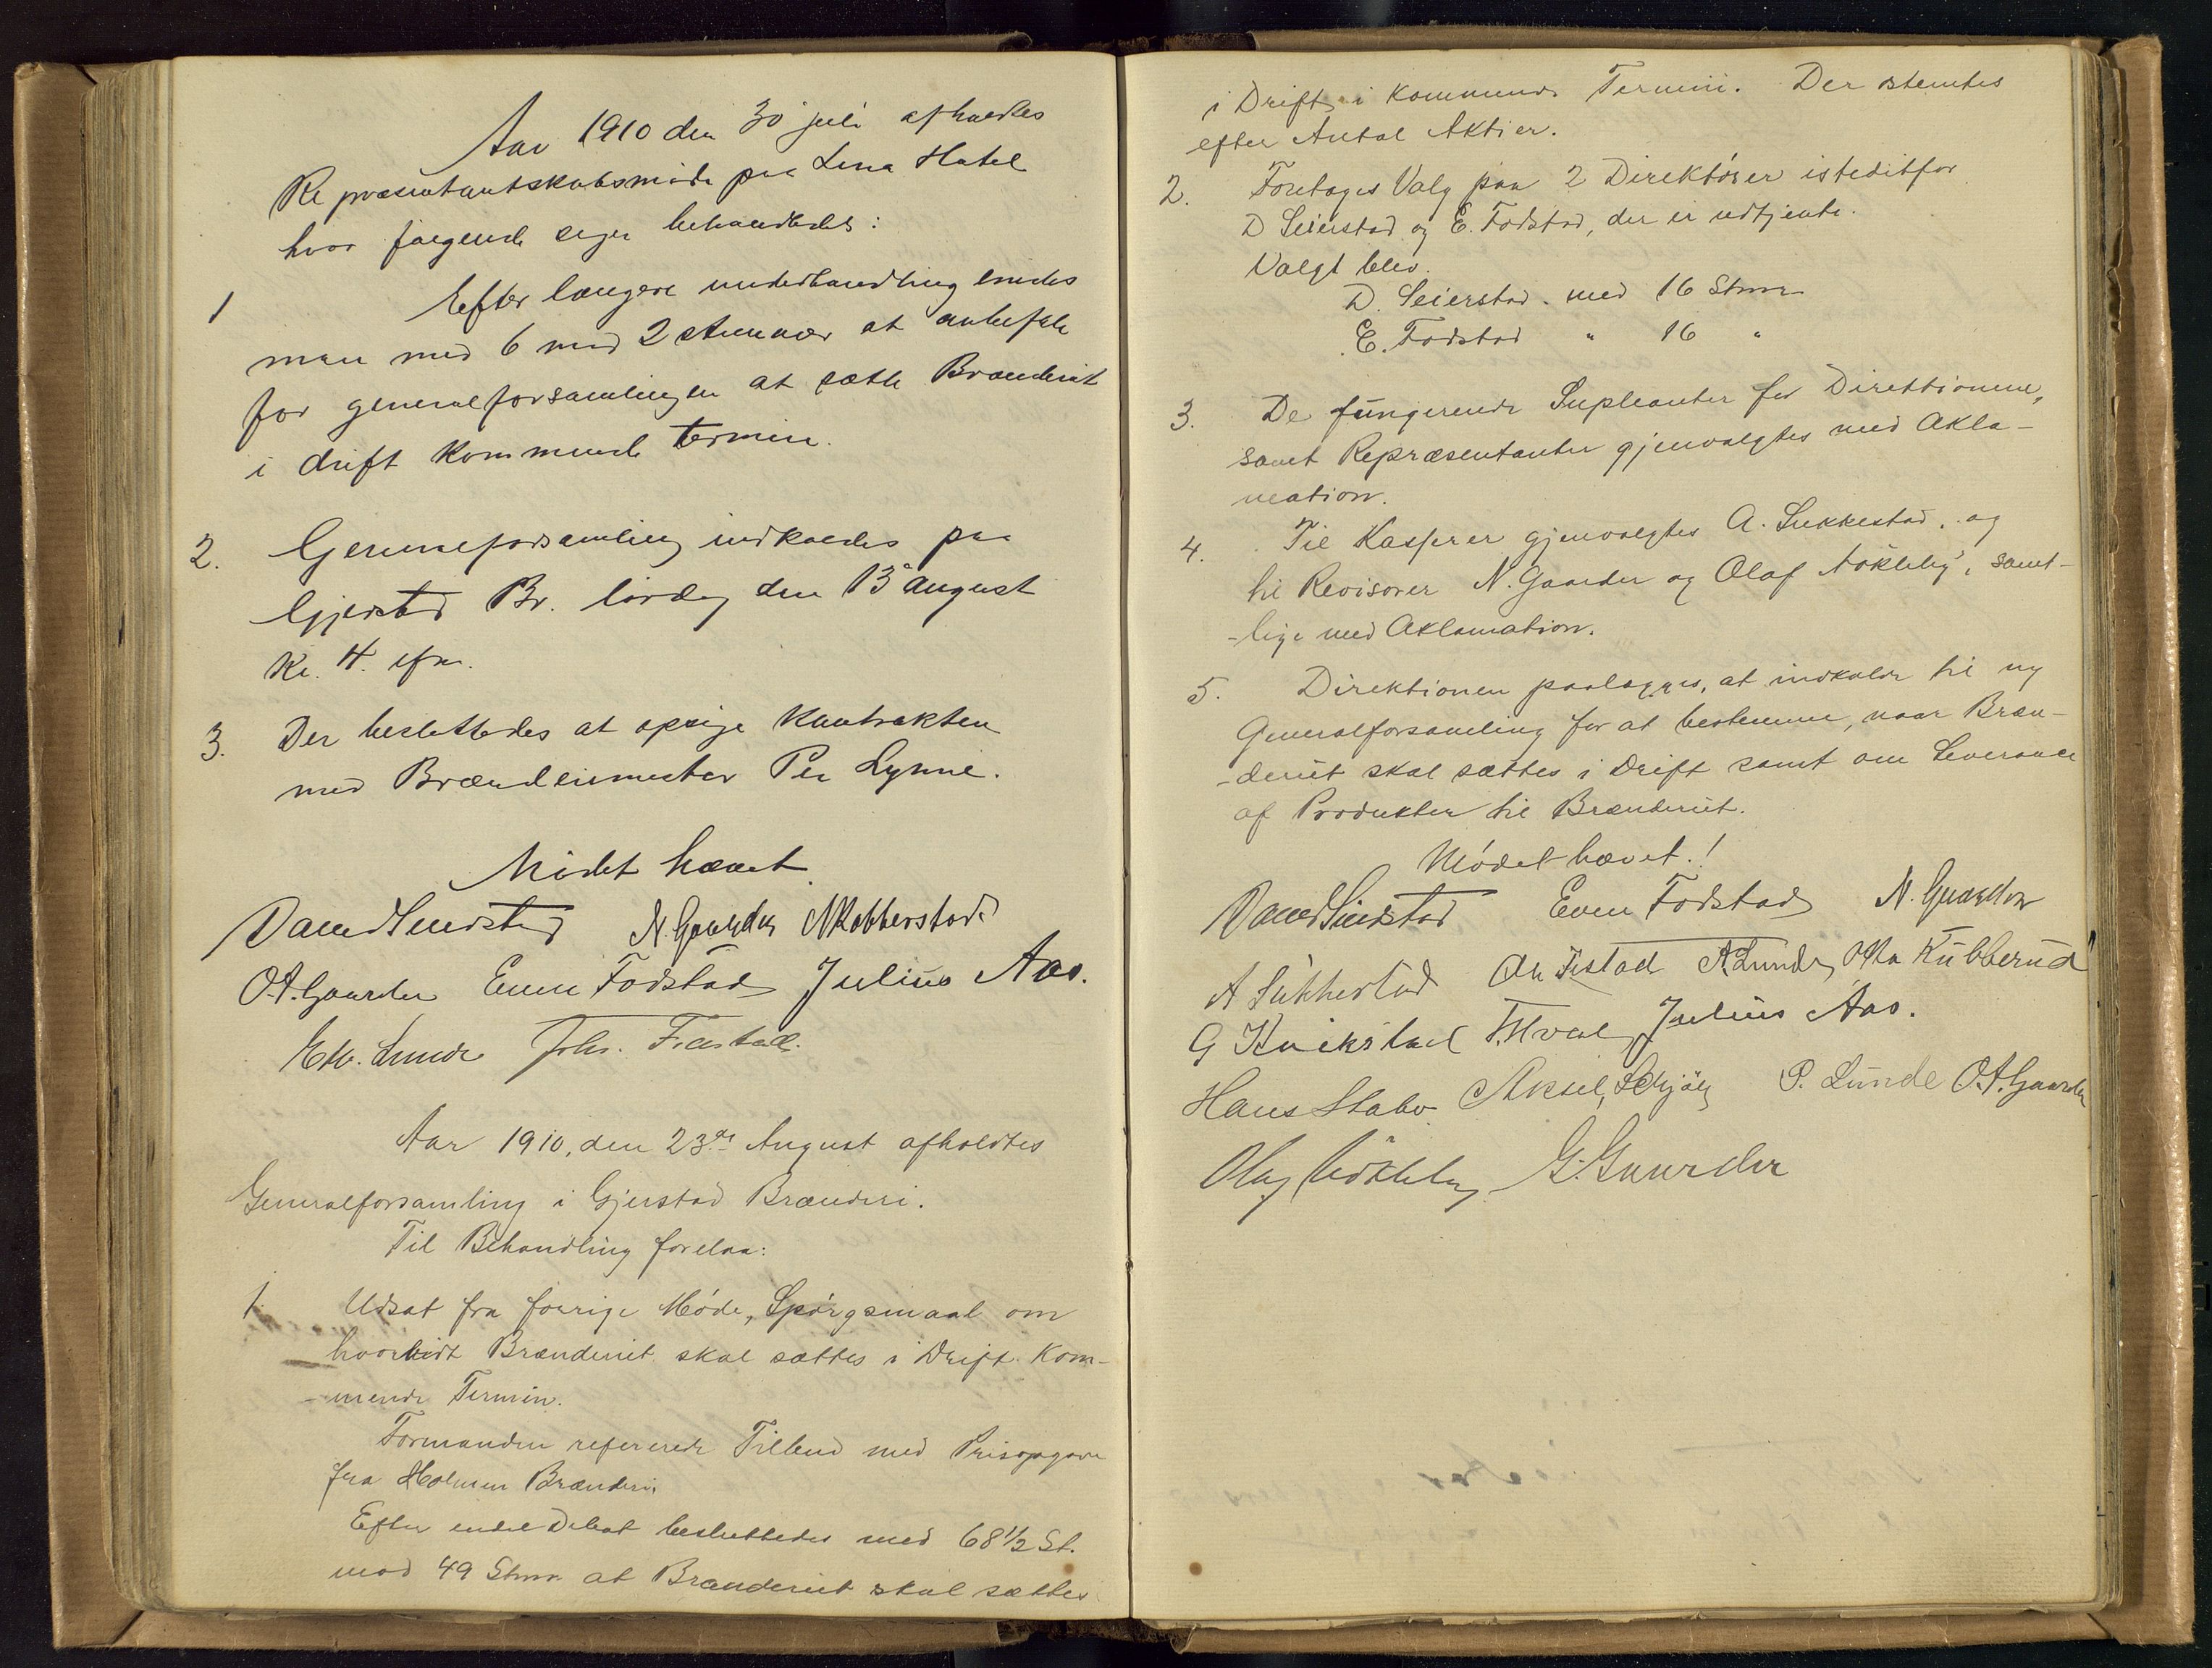 Aar 1910 den 30 juli afholdtes
Repræsentantskabsmøde paa Lena Hotel
hvor følgende sager behandledes:
1 Efter længere underhandling enedes
man med 6 mod 2 stemmer at anbefale
for generalforsamlingen at sætte Brænderiet
i drift kommende termin.
2. Generalforsamling indkaldes paa
Gjerstad Br. lørdag den 13 august
Kl. 4. efm.
3. Der besluttedes at opsige Kontrakten
med Brænderimester Per Lynne.
Mødet hævet
N. Gaarder N Kobberstad
O.A. Gaarder Even Fodstad Julius Aas.
Edv. Lunde Johs. Fiestad.
Aar 1910, den 23de August afholdtes
Generalforsamling i Gjerstad Brænderi.
Til Behandling forelaa:
1. Udsat fra forrige Møde, Spørgsmaal om
hvorvidt Brænderiet skal sættes i Drift kom-
-mende Termin.
Formanden refererede Tilbud med Prisopgave
fra Holmen Brænderi.
Efter endel Debat besluttedes med 68 1/2 St.
mod 49 Stmr. at Brænderiet skal sættes
i Drift i kommende Termin. Der stemtes
efter Antal Aktier.
2. Foretoges Valg paa 2 Direktører istedetfor
D Seierstad og E. Fodstad, der er udtjente.
Valgt blev.
D. Seierstad. med 16 Stmr
E. Fodstad " 16 "
3. De fungerende Supleanter for Direktionene,
samt Repræsentanter gjenvalgtes med Akla-
mation.
4. Til Kasserer gjenvalgtes A. Sukkestad, og
til Revisorer N. Gaarder og Olaf Nøkleby, samt-
-lige med Aklamation.
5. Direktionen paalægges, at indkalde til ny
Generalforsamling for at bestemme, naar Bræn-
-deriet skal sættes i Drift samt om Leverance
af Produkter til Brænderiet.
Mødet hævet.!
Even Fodstad N. Gaarder
A Sukkestad A Lunde Kubberud
G Knikstad T. Hval Julius Aas.
Hans Stabo Aksel P. Lunde O.A. Gaarder
Olaf Nøkleby G. Gaarder